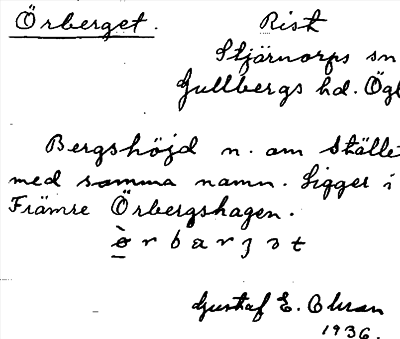 Örberget. Rist
Stjärnorps sn
Gullbergs hd. Ögl
Bergshöjd n. om Stället
med samma namn. Ligger i
Främre Örbergshagen.
Gustaf E.
1936.